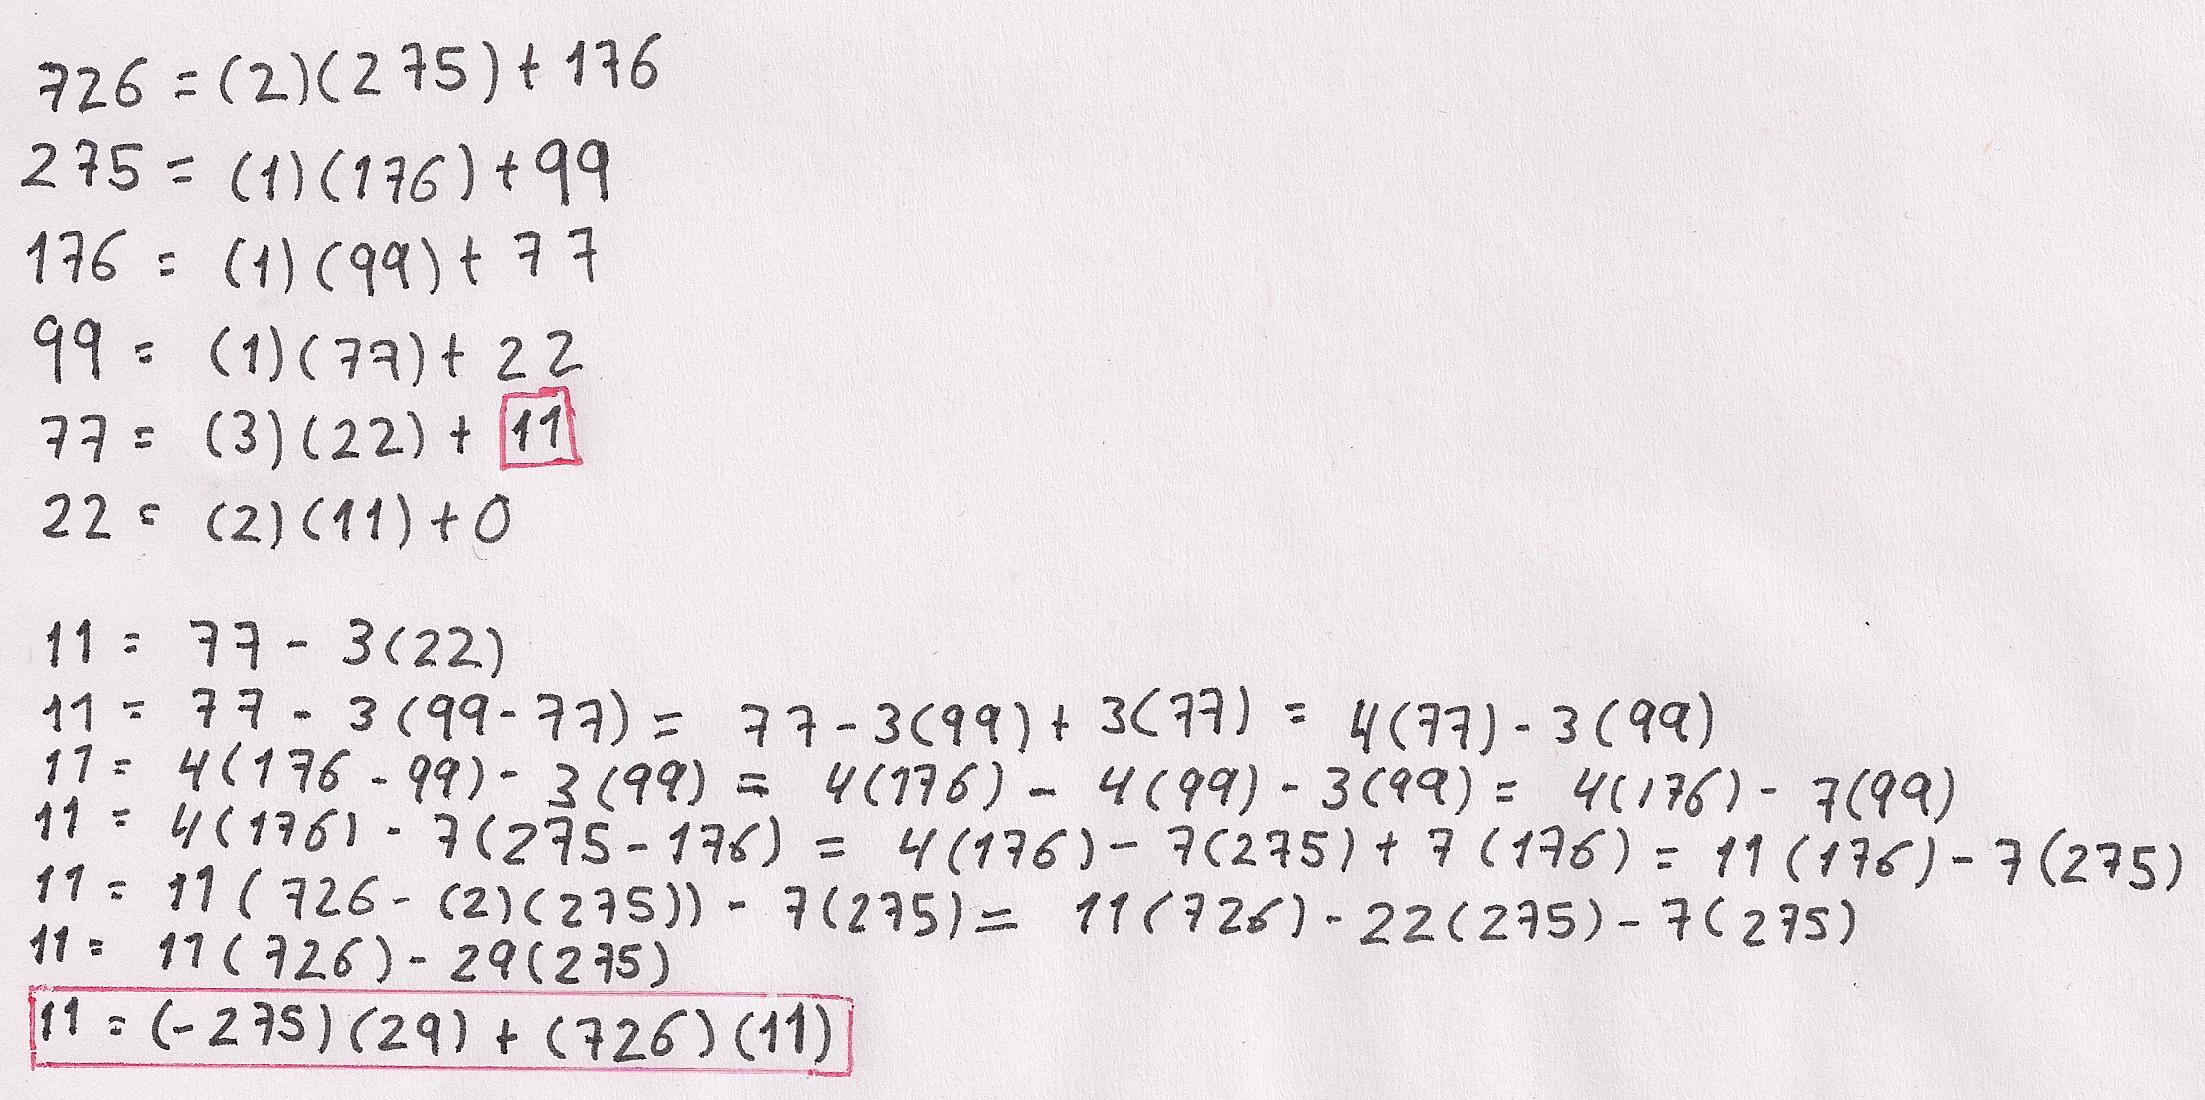 726 = (2)(275) + 176
275 = (1)(176) + 99
176 = (1)(99) + 77
99 = (1)(77) + 22
77 = (3)(22) + 11
22 = (2)(11) + 0
11 = 77 - 3(22)
11 = 77 - 3(99-77) = 77 - 3(99) + 3(77) = 4(77) - 3(99)
11 = 4(176 - 99) - 3(99) = 4(176) - 4(99) - 3(99) = 4(176) - 7(99)
11 = 4(176) - 7(275 - 176) = 4(176) - 7(275) + 7(176) = 11(176) - 7(275)
11 = 11(726 - (2)(275)) - 7(275) = 11(726) - 22(275) - 7(275)
11 = 11(726) - 29(275)
11 = (-275)(29) + (726)(11)